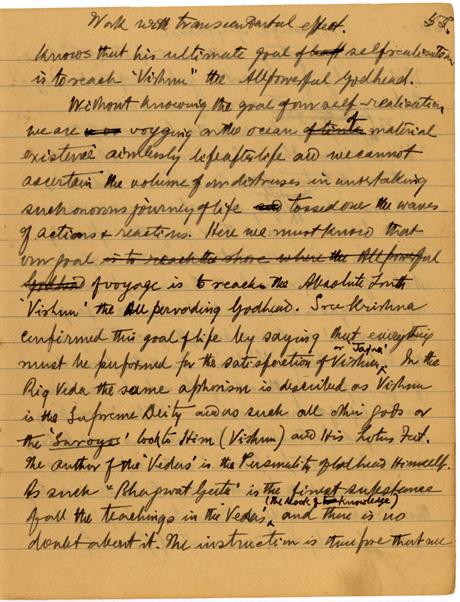 Work with transcendental effect.
58.
knows that his ultimate goal of self realisation
is to reach "Vishnu" the Allpowerful Godhead.
Without knowing the goal of our self-realisation
we are voyging on the ocean of material
existence aimlessly life after life and we cannot
ascertain the volume of our distruses in undertaking
such onorous journey of life tossed over the waves
of actions & reactions. Here we must know that
our goal is to reach the shore where the Allpowerful
Godhead of voyage is to reach the Absolute Truth
'Vishnu' the All pervading Godhead. Sree Krishna
confirmed this goal of life by saying that everything
must be performed for the satisfaction of Vishnu 'Jajna'. In the
Rig Veda the same aphorism is described as Vishnu
is the Supreme Deity and as such all other gods or
the 'Suroyas' look to Him (Vishnu) and His Lotus Feet.
The author of the 'Vedas' is the Personality of Godhead Himself.
As such "Bhagwat Geeta" is the finest substance
of all the teachings in the Vedas (the Book of knowledge), and there is no
doubt about it. The instruction is therefore that we